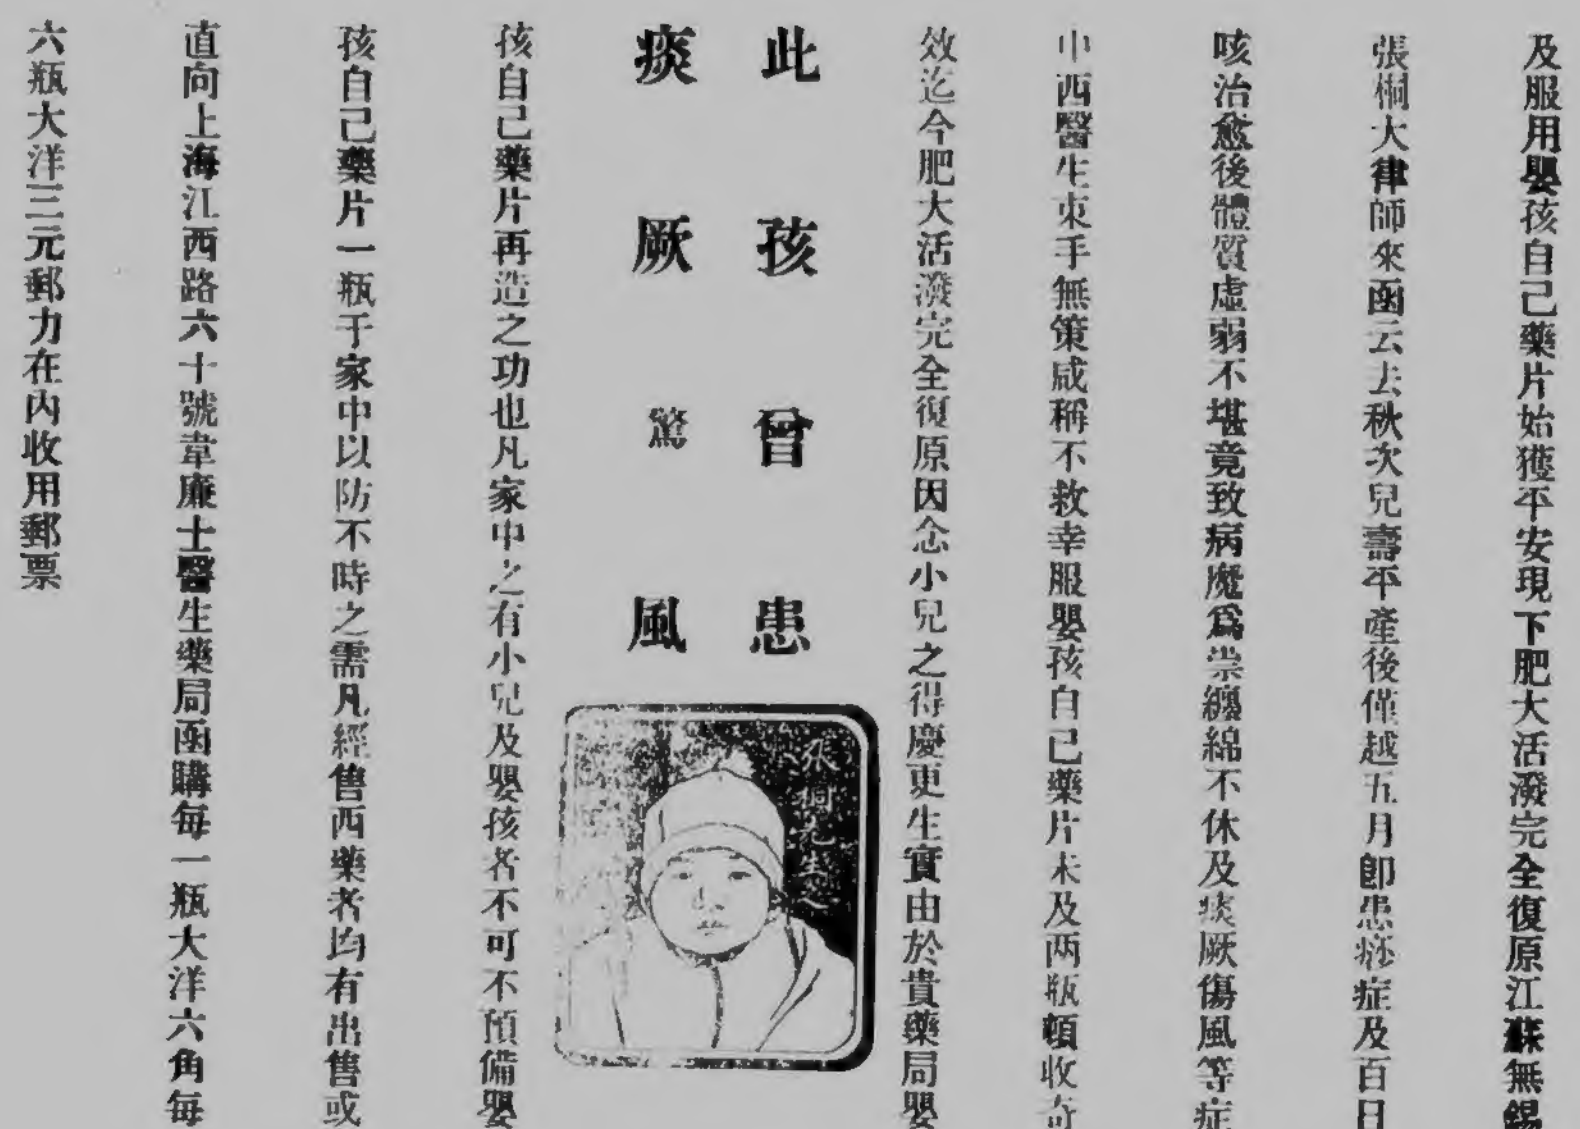 及服用嬰孩自己藥片始獲平安現下肥大活潑完全復原江蘇無錫
張桐大律師來函云去秋次兒壽平產後僅越五月卽患痧症及百日
咳治愈後體質虛弱不堪竟致病魔爲祟纏綿不休及痰厥傷風等症
中西醫生束手無策咸稱不救幸服嬰孩自己藥片未及兩瓶頓收奇
效迄今肥大活潑完全復原因念小兒之得慶更生實由於貴藥局嬰
此孩曾患
痰厥驚風
張桐先生之
孩自己藥片再造之功也凡家中之有小兒及嬰孩者不可不預備嬰
孩自己藥片一瓶于家中以防不時之需凡經售西藥者均有出售或
直向上海江西路六十號韋廉士醫生藥局函購每一瓶大洋六角每
六瓶大洋三元郵力在內收用郵票